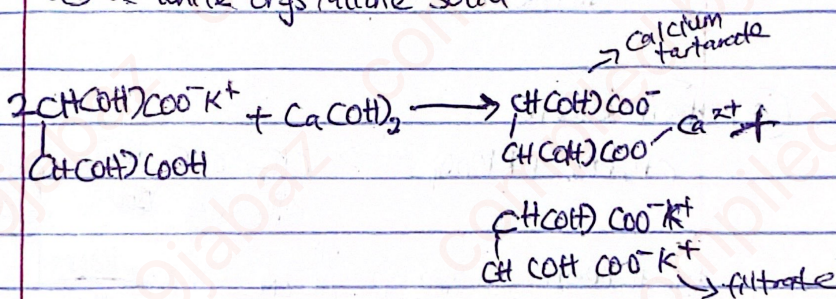 white crystalline solid
Calcium
tartarate
2 CH(OH)COO⁻K⁺ + Ca(OH)₂ ⟶ CH(OH)COO⁻
CH(OH)COOH
CH(OH)COO Ca²⁺ +
CH(OH) COO⁻K⁺
CH COH COO⁻K⁺
filtrate